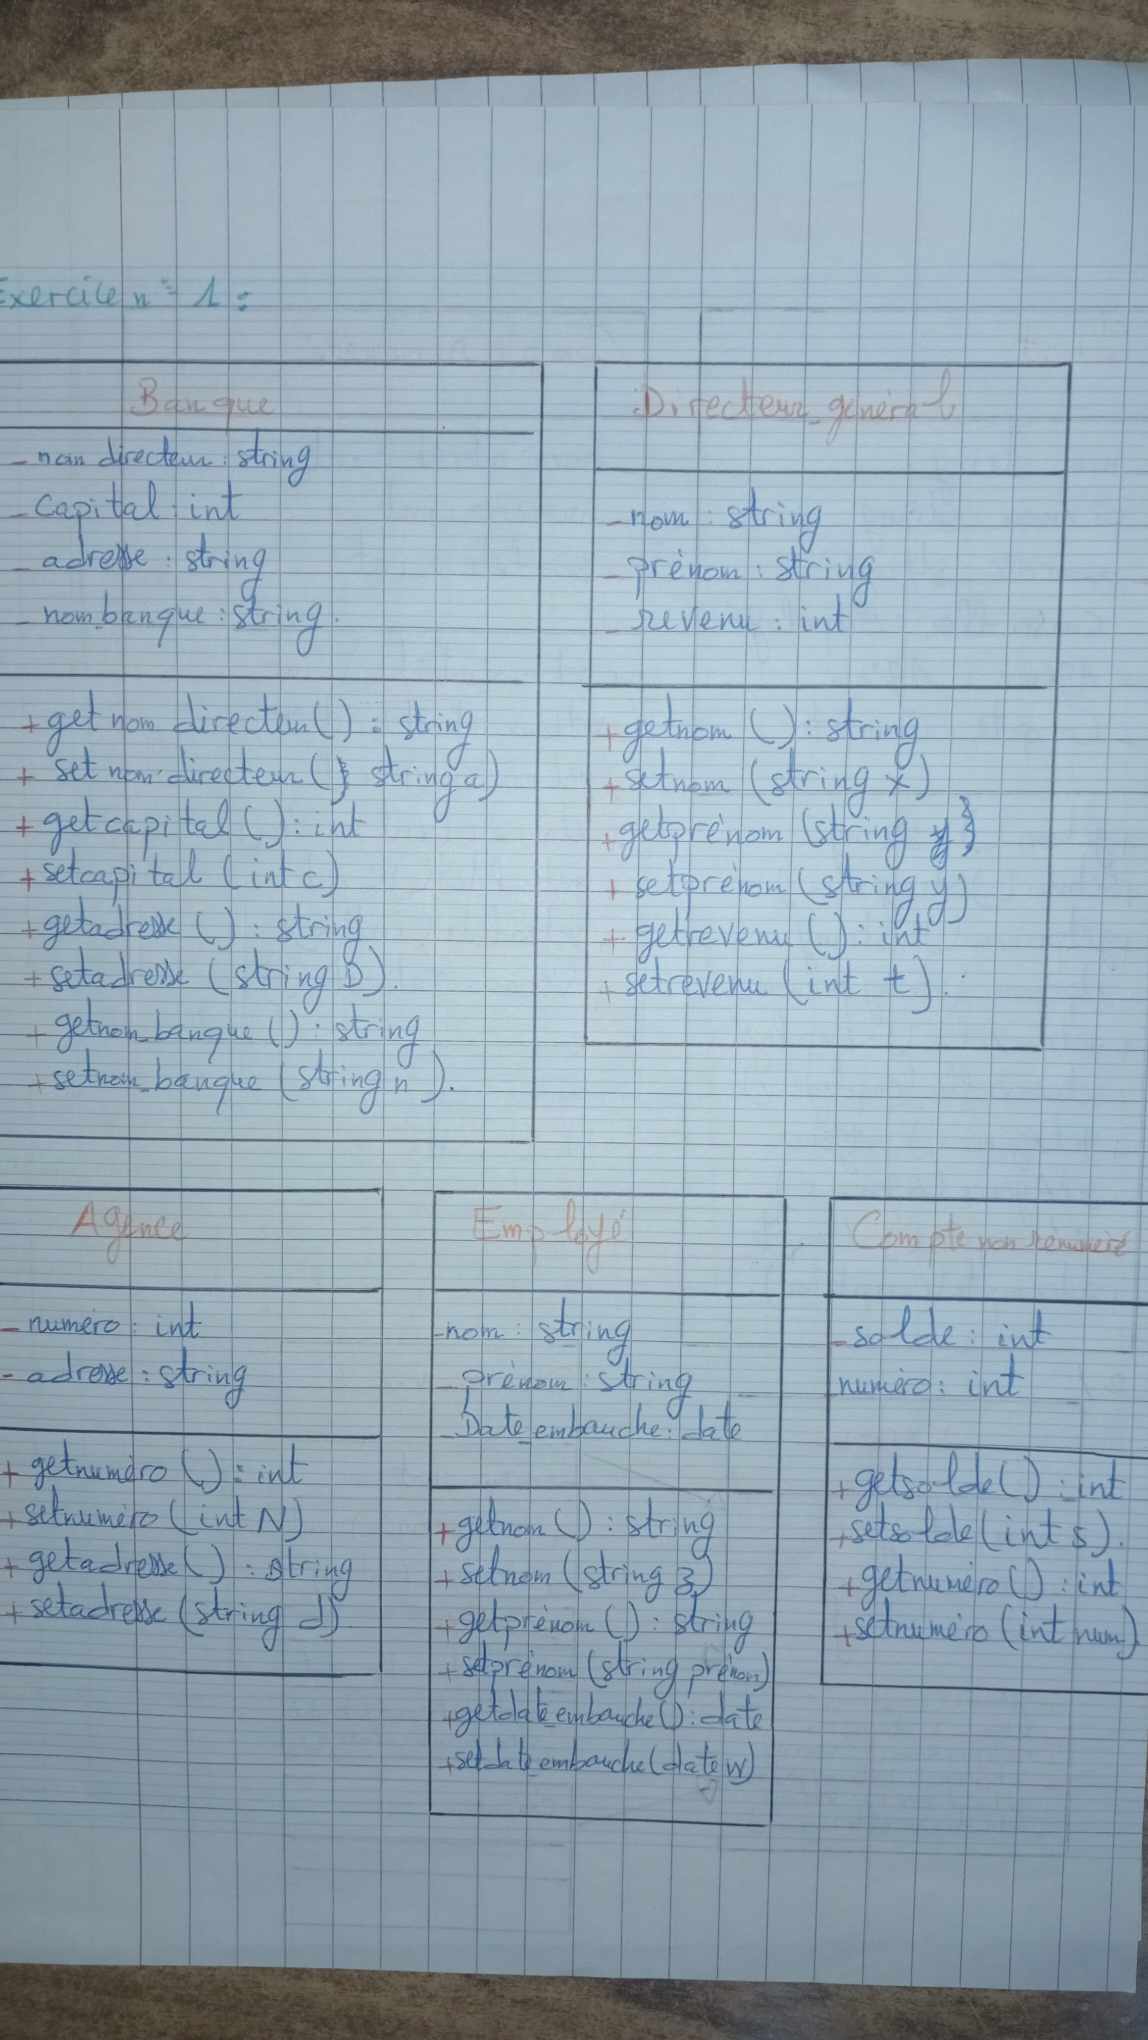 Exercice n° 1 :
Banque
- nom directeur : string
- capital : int
- adresse : string
- nom_banque : string.
+ get nom directeur ( ) : string
+ set nom directeur ( string a)
+ get capital ( ) : int
+ setcapital (int c)
+ getadresse ( ) : string
+ setadresse (string b).
+ getnom_banque ( ) : string
+ setnom_banque (string n ).
Directeur_général
- nom : string
- prénom : string
- revenu : int
+ getnom ( ) : string
+ setnom (string x)
+ getprénom (string y)
+ setprénom (string y)
+ getrevenu ( ) : int
+ setrevenu (int t).
Agence
- numéro : int
- adresse : string
+ getnuméro ( ) : int
+ setnuméro (int N)
+ getadresse ( ) : string
+ setadresse (string d)
Employé
- nom : string
- prénom : string
- Date_embauche : date
+ getnom ( ) : string
+ setnom (string z)
+ getprénom ( ) : string
+ setprénom (string prénom)
+ getdate_embauche( ) : date
+ setdate_embauche (date w)
Compte non rémunéré
- solde : int
numéro : int
+ getsolde ( ) : int
+ setsolde (int s).
+ getnuméro ( ) : int
+ setnuméro (int num)